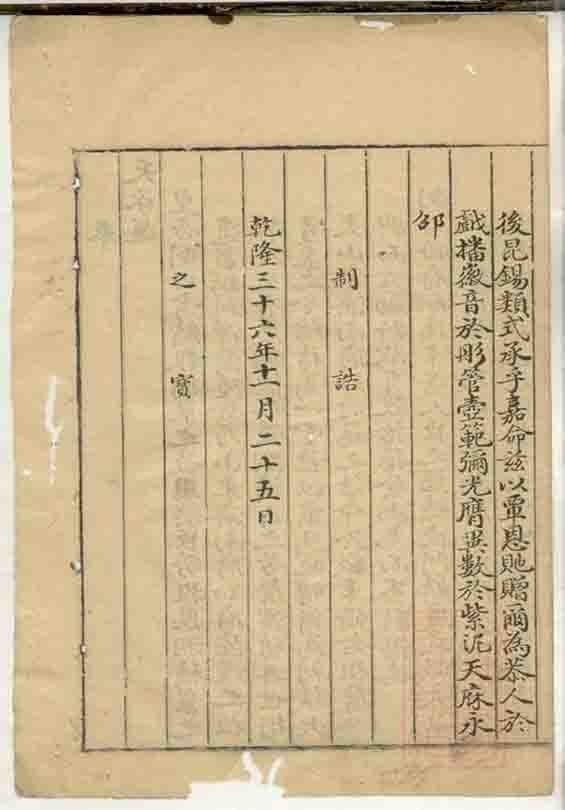 後昆錫類式承乎嘉命兹以覃恩貤贈爾為恭人於
戲播徽音於彤管壼範彌光膺異數於紫泥天庥永
邵
制誥
乾隆三十六年十一月二十五日
之寳